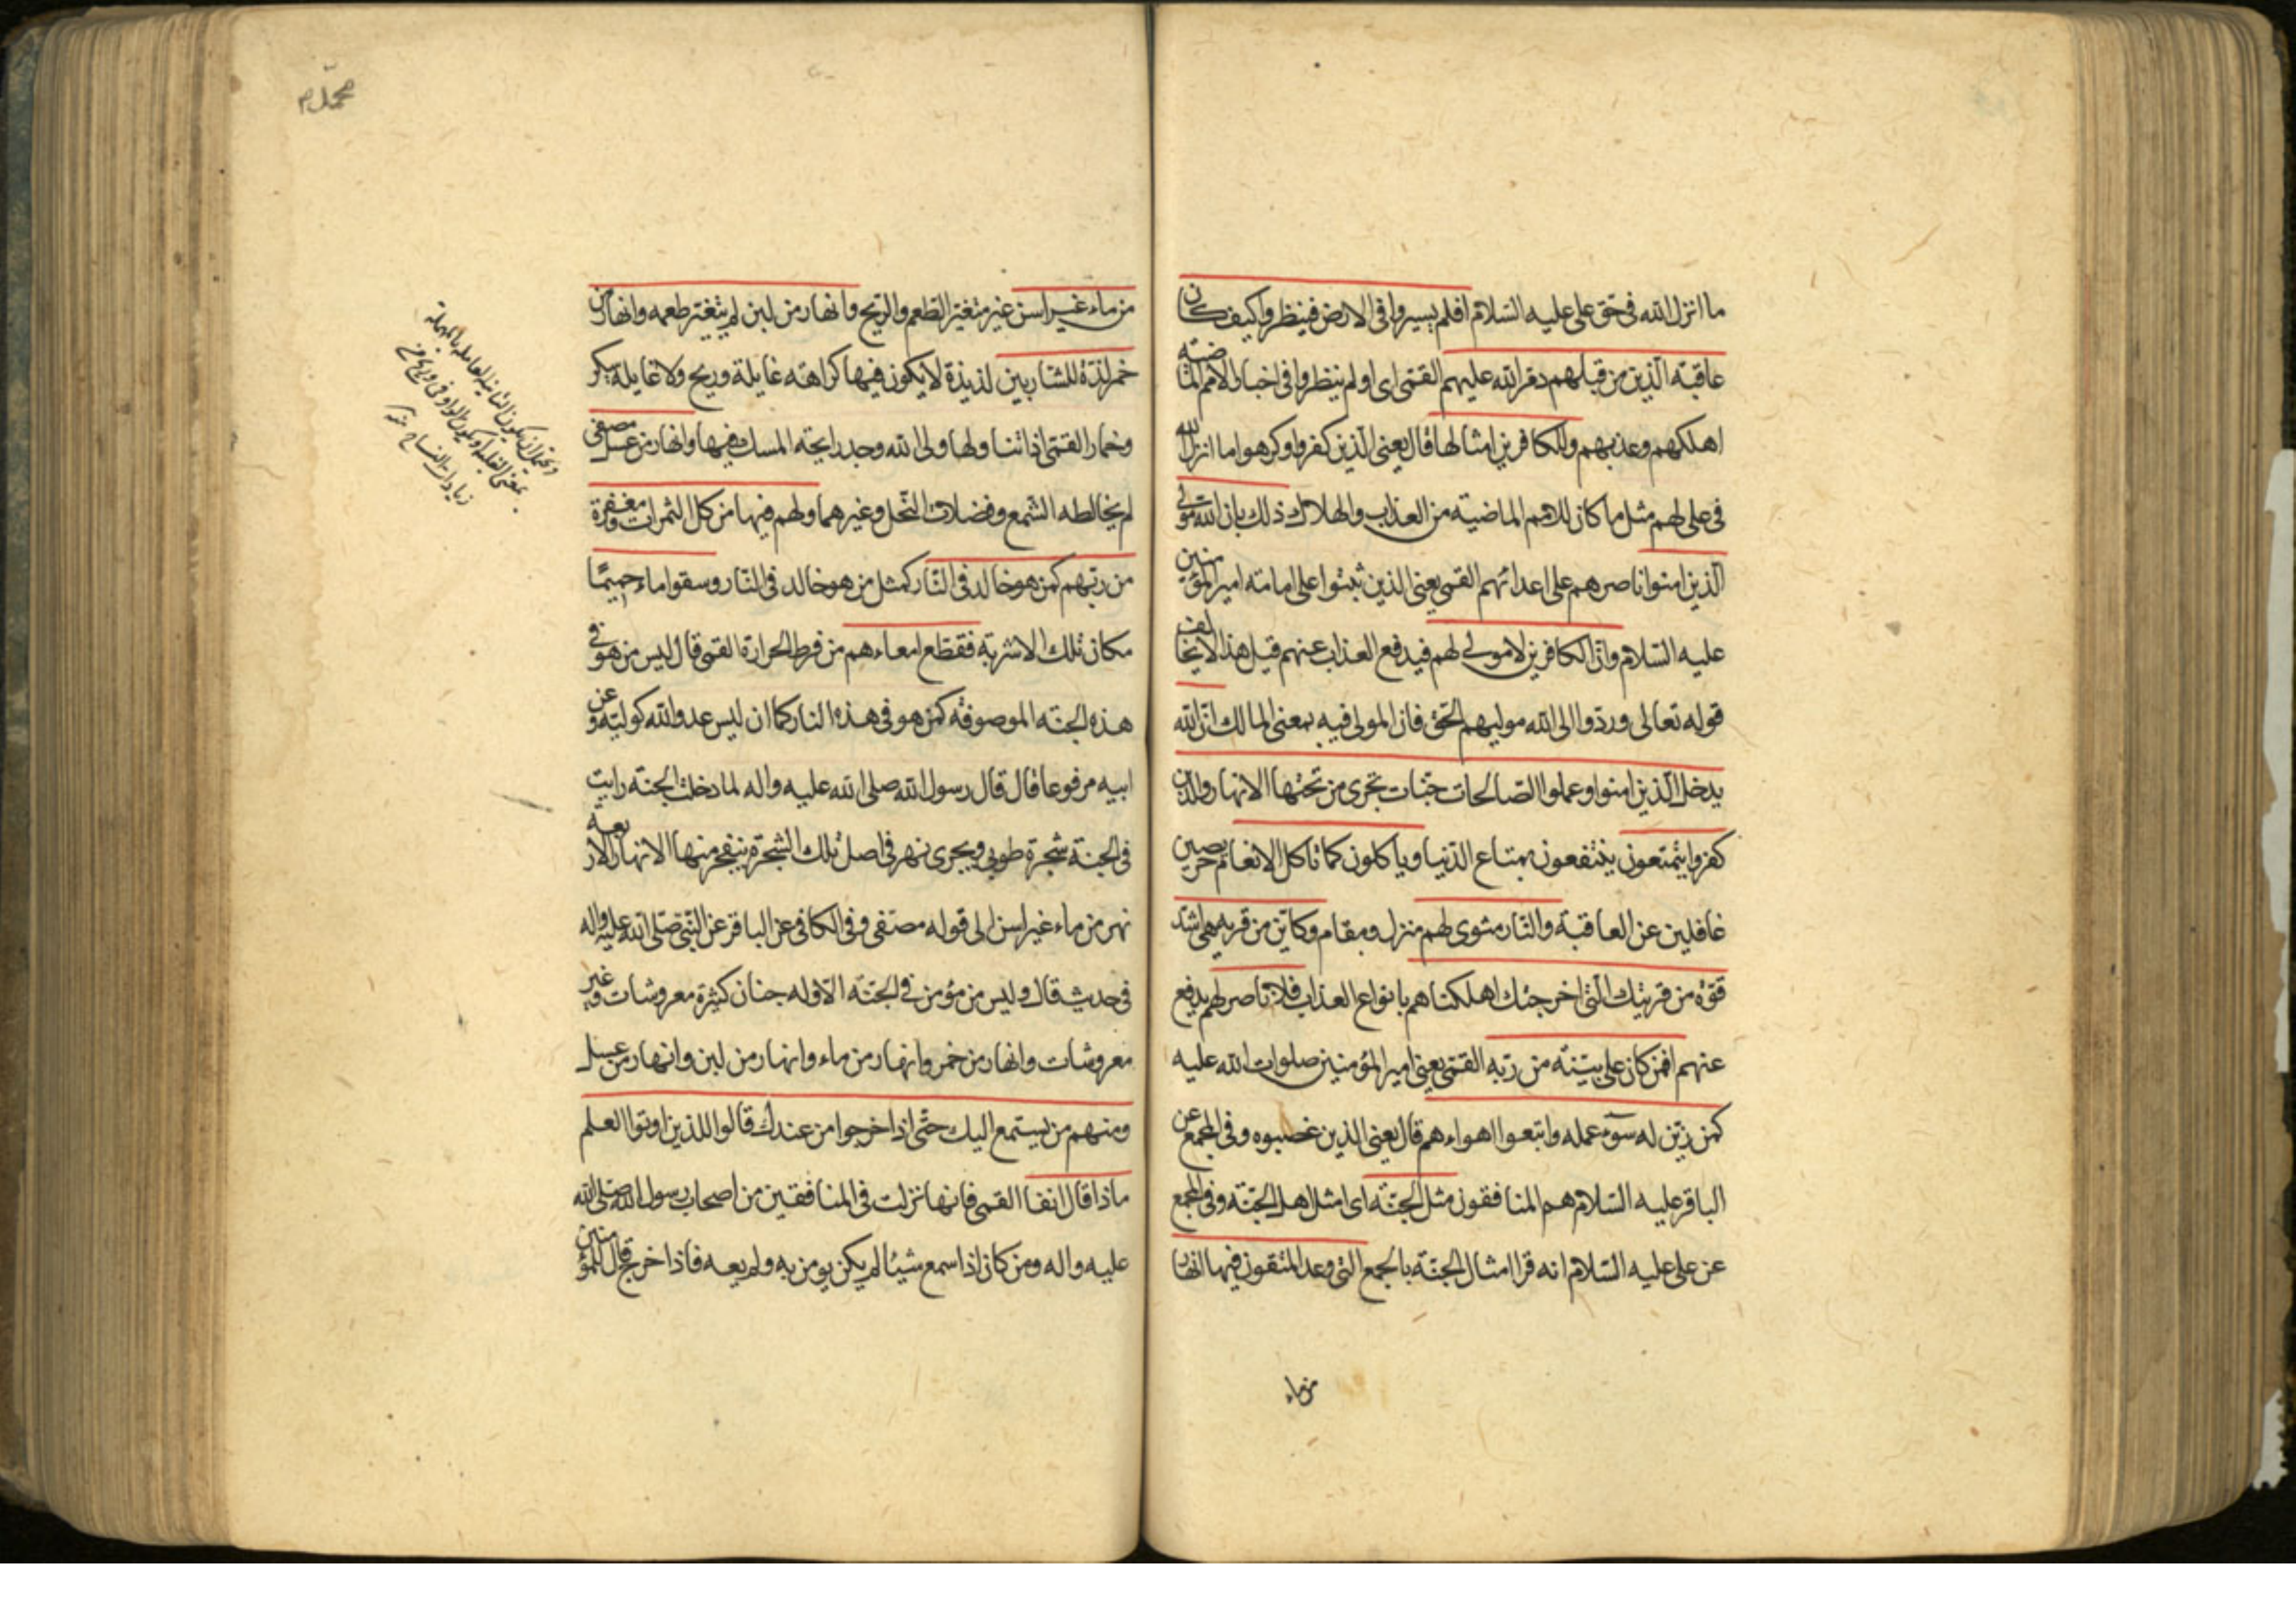 ما انزل الله فى حق على عليه السلام افلم يسيروا فى الارض فينظروا كيف كان
عاقبة الذين من قبلهم دمر الله عليهم القمى اى اولم ينظروا فى اخبار الامم الماضية
اهلكهم وعذبهم وللكافرين امثالها قال يعنى الذين كفروا وكرهوا ما انزل الله
فى على لهم مثل ما كان للامم الماضية من العذاب والهلاك ذلك بان الله مولى
الذين امنوا ناصرهم على اعدائهم القمى يعنى الذين ثبتوا على امامته امير المؤمنين
عليه السلام وان الكافرين لا مولى لهم فيدفع العذاب عنهم قيل هذا لا يخالف
قوله تعالى وردوا الى الله موليهم الحق فان المولى فيه بمعنى المالك ان الله
يدخل الذين امنوا وعملوا الصالحات جنات تجرى من تحتها الانهار والذين
كفروا يتمتعون ينتفعون بمتاع الدنيا وياكلون كما تاكل الانعام حريصين
غافلين عن العاقبة والنار مثوى لهم منزل ومقام وكاين من قرية هى اشد
قوة من قريتك التى اخرجتك اهلكناهم بانواع العذاب فلا ناصر لهم يدفع
عنهم افمن كان على بينة من ربه القمى يعنى امير المؤمنين صلوات الله عليه
كمن زين له سوء عمله واتبعوا اهواءهم قال يعنى الذين غصبوه وفى المجمع عن
الباقر عليه السلام هم المنافقون مثل الجنة اى امثل اهل الجنة وفى المجمع
عن على عليه السلام انه قرا امثال الجنة بالجمع التى وعد المتقون فيها انهار
من ماء
محمد م
من ماء غير اسن غير متغير الطعم والريح وانهار من لبن لم يتغير طعمه وانهار من
خمر لذة للشاربين لذيذة لا يكون فيها كراهة غايلة وريح ولا غايلة سكر
وخمار القمى اذا تناولها ولى الله وجد رايحة المسك فيها وانهار من عسل مصفى
لم يخالطه الشمع وفضلات النحل وغيرهما ولهم فيها من كل الثمرات ومغفرة
من ربهم كمن هو خالد فى النار كمثل من هو خالد فى النار وسقوا ماء حميما
مكان تلك الاشربة فقطع امعاءهم من فرط الحرارة القمى قال ليس من هو فى
هذه الجنة الموصوفة كمن هو فى هذه النار كما ان ليس عدو الله كوليه وعن
ابيه مرفوعا قال قال رسول الله صلى الله عليه واله لما دخلت الجنة رايت
فى الجنة شجرة طوبى ويجرى نهر فى اصل تلك الشجرة ينفجر منها الانهار الاربعة
نهر من ماء غير اسن الى قوله مصفى وفى الكافى عن الباقر عن النبى صلى الله عليه واله
فى حديث قال وليس من مؤمن فى الجنة الا وله جنان كثيرة معروشات وغير
معروشات وانهار من خمر وانهار من ماء وانهار من لبن وانهار من عسل
ومنهم من يستمع اليك حتى اذا خرجوا من عندك قالوا للذين اوتوا العلم
ماذا قال انفا القمى فانها نزلت فى المنافقين من اصحاب رسول الله صلى الله
عليه واله ومن كان اذا سمع شيئا لم يكن يومن به ولم يعه فاذا خرج قال للمؤمنين